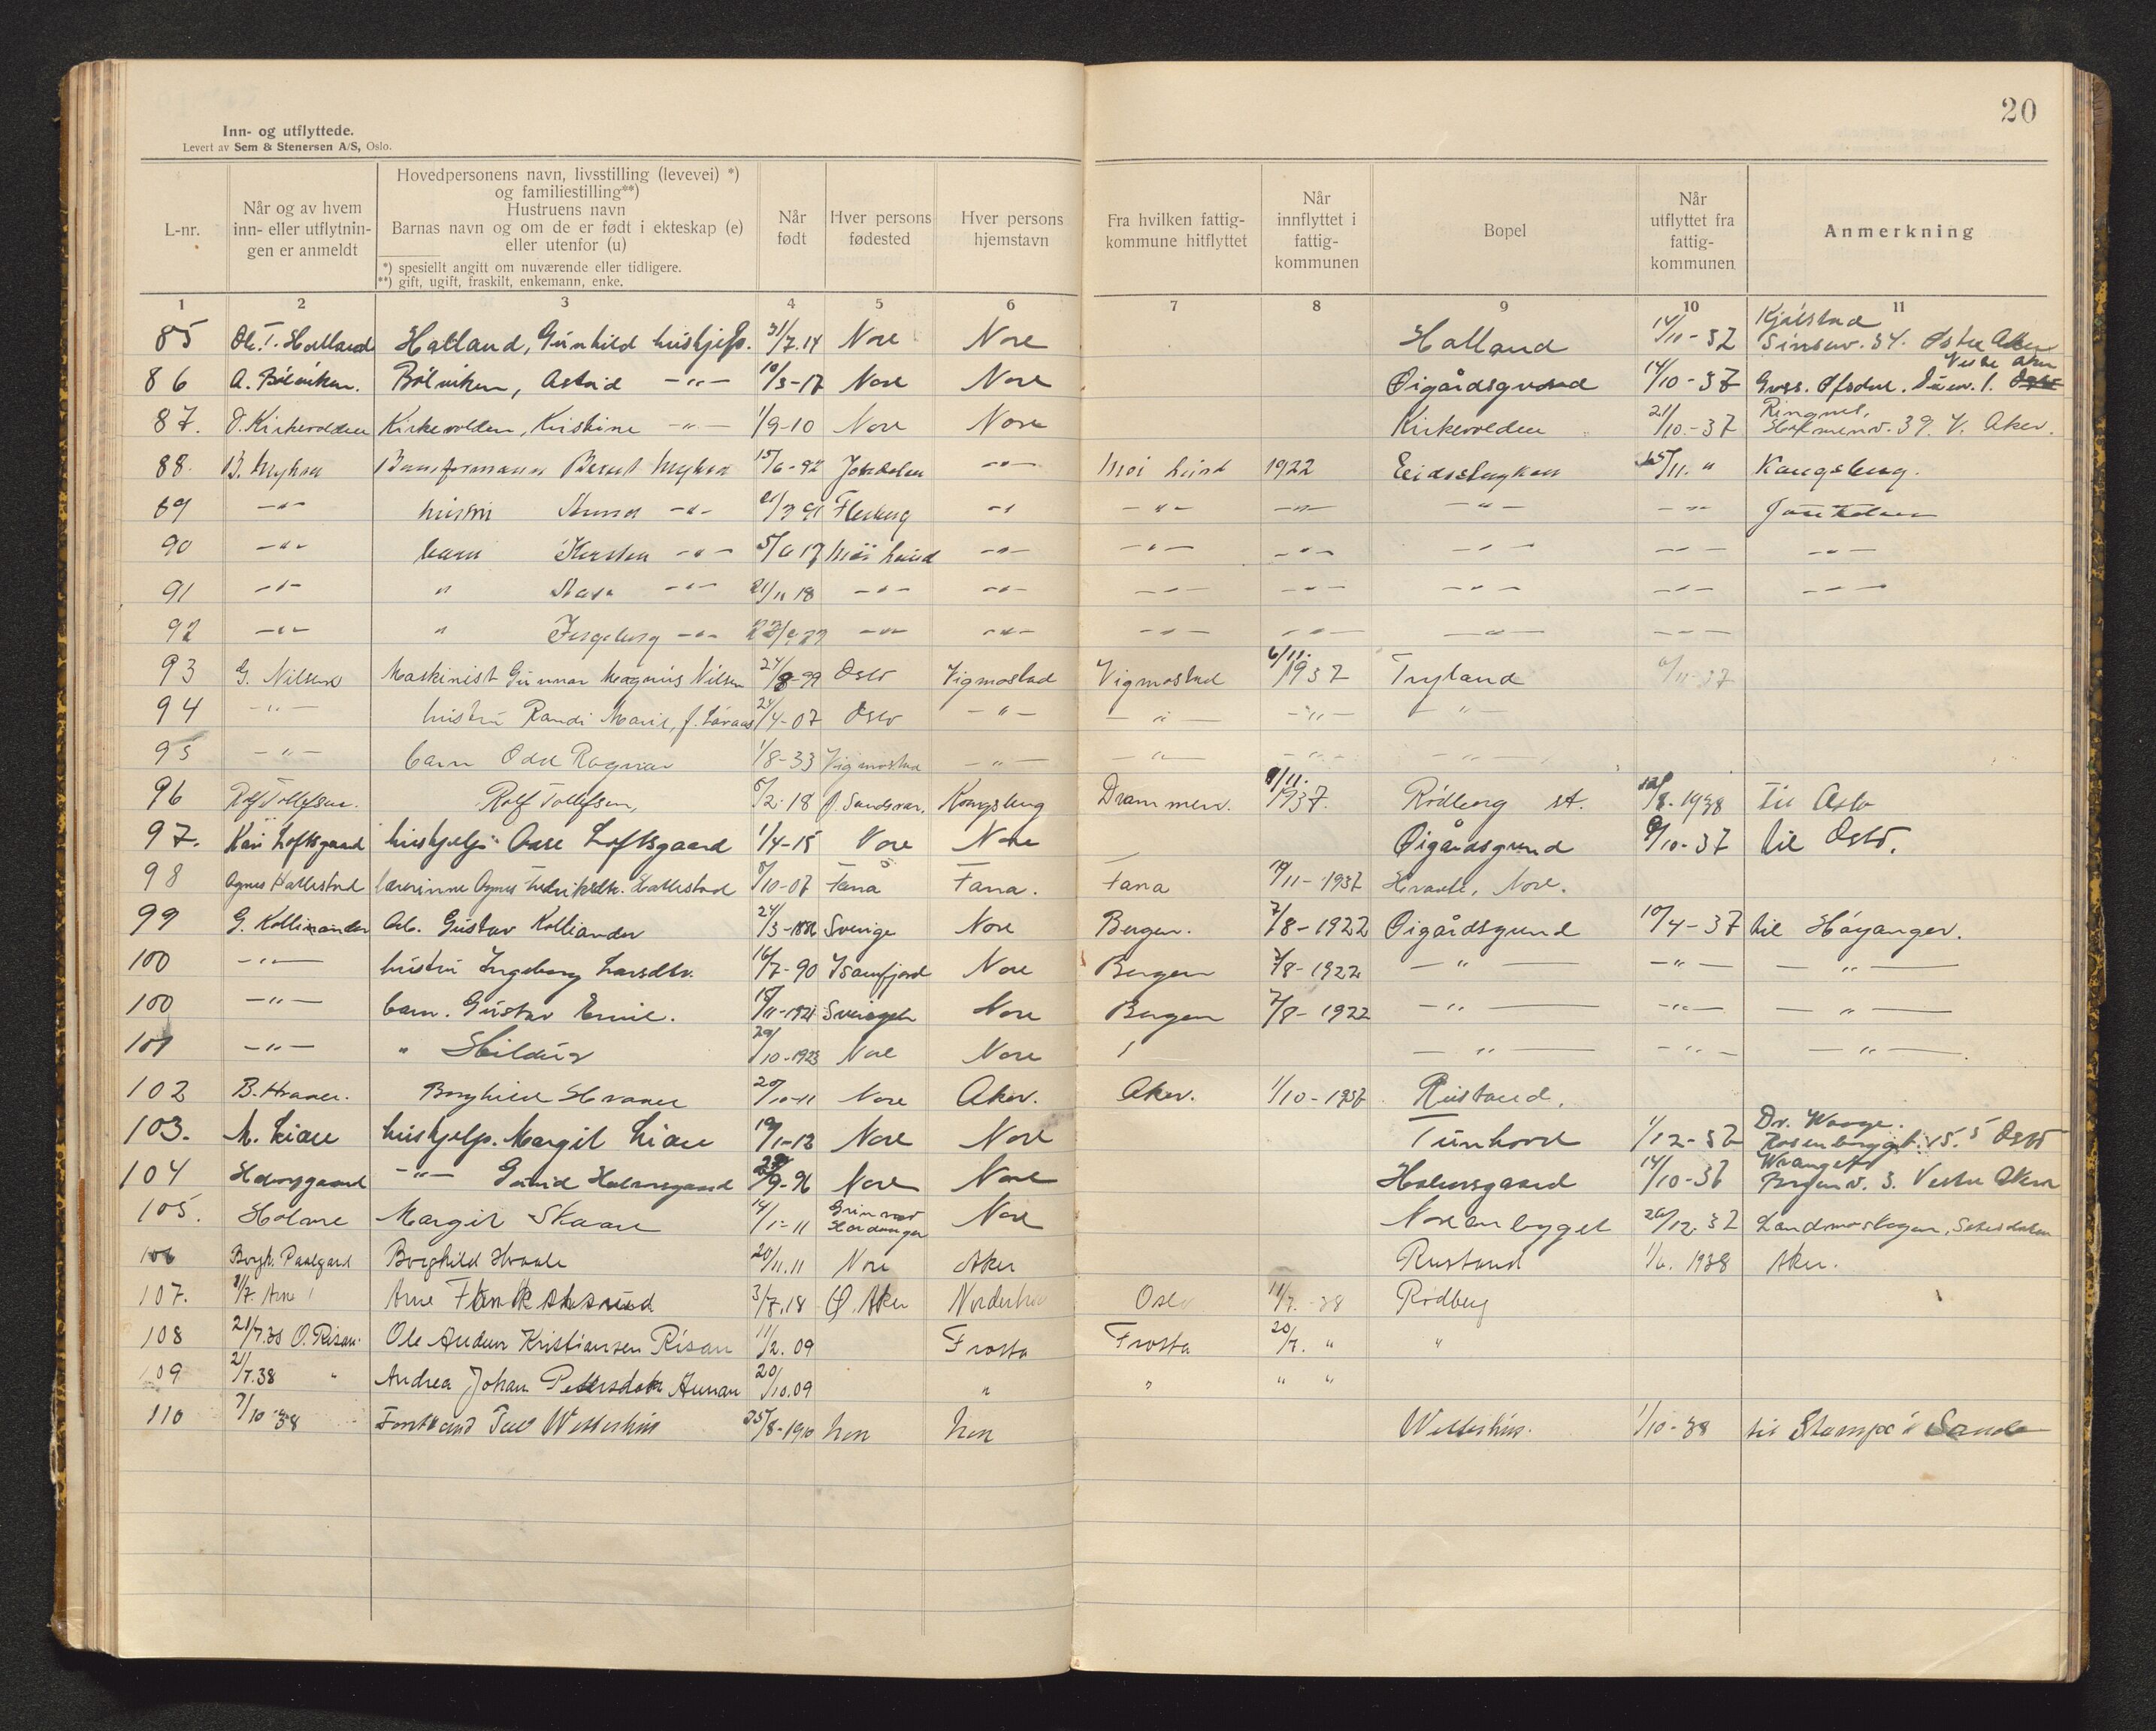 20
Inn- og utflyttede.
Levert av Sem & Stenersen A/S, Oslo.
L-nr.
Når og av hvem inn- eller utflytnin-gen er anmeldt
Hovedpersonens navn, livsstilling (levevei) *)
og familiestilling**)
Hustruens navn
Barnas navn og om de er født i ekteskap (e)
eller utenfor (u)
*) spesiellt angitt om nuværende eller tidligere.
**) gift, ugift, fraskilt, enkemann, enke.
Når født
Hver persons fødested
Hver persons hjemstavn
Fra hvilken fattig-kommune hitflyttet
Når innflyttet i fattig-kommunen
Bopel
Når utflyttet fra fattig-kommunen
Anmerkning
1 2 3 4 5 6 7 8 9 10 11
85 Ole T. Halland Halland, Gunhild hushjelp. 31/7.14 Nore Nore Halland 14/11-37 Østre Aker
86 A. Bölviken. Bölviken, Astrid -"- 10/3-17 Nore Nore Øigårdsgrund 14/10-37 Vestre Aker
87. Kirkevolden Kirkevolden, Kristine -"- 1/9-10 Nore Nore Kirkevolden 21/10.-37 39. V. Aker.
88. B. Myhra Bernt Myhra 15/6-92 Jondalen -"- 1922 15/11. " Kongsberg.
89 -"- hustru Anna -"- Flesberg -"- -"- -"- -"- -"- Jondalen
90 -"- barn Kirsten -"- -"- -"- -"- -"- -"- -"-
91 -"- " -"- 21/11 18 -"- -"- -"- -"- -"- -"- -"-
92 -"- " Ingeborg -"- -"- -"- -"- -"- -"- -"-
93 G. Nilsen Maskinist Gunnar Magnus Nilsen 24/8-99 Oslo Vigmostad Vigmostad 6/11. 1937 Tryland 6/11-37
94 -"- hustru Randi Marie, f. 24/4-07 Oslo -"- -"- -"- -"-
95 -"- barn Odd Ragnar 1/8-33 Vigmostad -"- -"- -"- -"-
96 Rolf Tollefsen. Rolf Tollefsen, 5/2.18 Ø. Sandsvær. Kongsberg Drammen. 1937. Rödberg st. 8-1938 til Oslo
97. Kari Loftsgaard hushjelp Aase Loftsgaard 1/4-15 Nore Nore Øigårdsgrund 9/10-37 til Oslo.
98 Agnes Hallestad lærerinne Agnes Hallestad 10-07 Fana Fana. Fana 11-1937 Hvaale, Nore.
99 G. Kolliander Arb. Gustav Kolliander 24/3-1886 Sverige Nore Bergen. 7/8-1922 Øigårdsgrund 10/4-37 til Höyanger.
100 -"- hustru Ingeborg Larsdtr. 16/7-90 Isamfjord Nore Bergen 7/8-1922 -"- -"- -"-
100 -"- barn. Gustav Emil. 11-1921 Nore Bergen 7/8-1922 -"- -"- -"-
101 -"- " Hildur 29/10-1923 Nore Nore -"- -"- -"-
102 B. Hvaale. Borghild Hvaale 20/10-11 Nore Aker. Aker. 1/10-1937 Rustand.
103. M. Liane hushjelp. Margit Liane 19/1-13 Nore Nore Tunhovd 1/12-37 Dr. Waage. Oslo
104 -"- Nore Nore 14/10-37 Vestre Aker
105. Holme Margit Skaare 14/1-11 Hardanger Nore 20/12.37
106 Borgh. Paalgard Borghild Hvaale 20/11.11 Nore Aker Rustand 1/6. 1938 Aker.
107. Arne Arne 3/7.18 Ø. Aker Norderhov Oslo 11/7.-38 Rödberg
108 21/7.38 O. Risan. Ole Andem Kristiansen Risan 11/2.09 Frosta Frosta 20/7. " "
109 21/7.38 " Andrea Johan Petersdotr Aunan 20/10.09 " " " "
110 7/10-38 25/8-1910 Nore Nore Wetterhus. 1/10-38 til i Sande